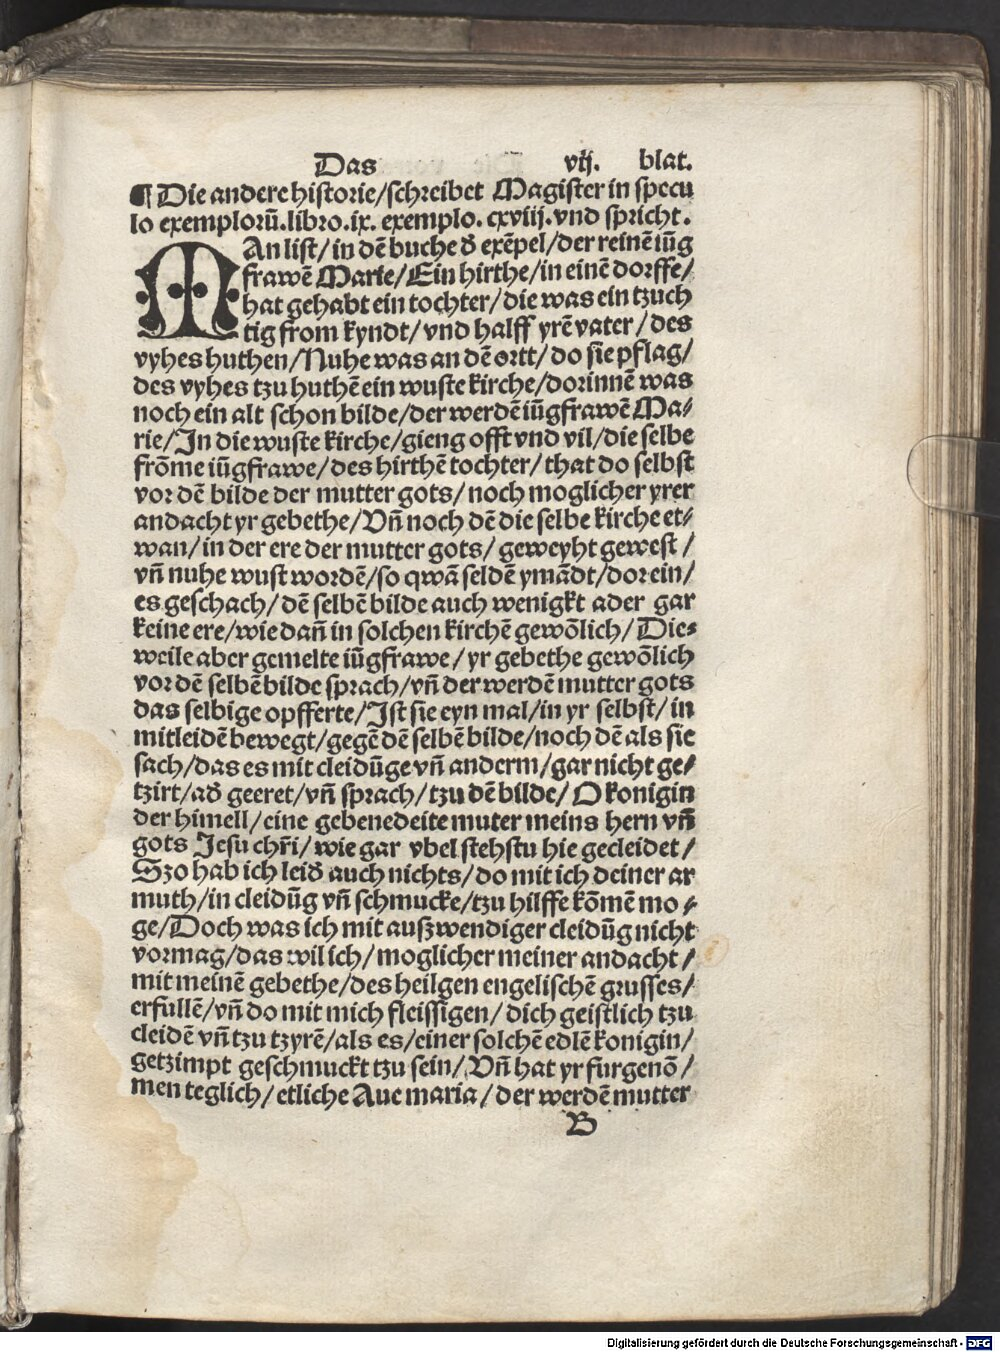 Das vij. blat.
¶ Die andere historie/schreibet Magister in specu
lo exemplorū.libro.ix. exemplo. cxviij.vnd spricht.
MAn list/ in dē buche d̕ exēpel/der reinē iūg
frawē Marie/Ein hirthe/in einē dorffe/
hat gehabt ein tochter/ die was ein tzuch
tig from kyndt/ vnd halff yrē vater/ des
vyhes huthen/Nuhe was an dē ortt/ do sie pflag/
des vyhes tzu huthē ein wuste kirche/dorinnē was
noch ein alt schon bilde/der werdē iūgfrawē Ma⸗
rie/In die wuste kirche/gieng offt vnd vil/die selbe
frōme iūgfrawe/des hirthē tochter/ that do selbst
vor dē bilde der mutter gots/ noch moglicher yrer
andacht yr gebethe/Vn̄ noch dē die selbe kirche et⸗
wan/ in der ere der mutter gots/ geweyht gewest/
vn̄ nuhe wust wordē/so qwā seldē ymādt/dorein/
es geschach/ dē selbē bilde auch wenigkt ader gar
keine ere/wie dan̄ in solchen kirchē gewōlich/ Die⸗
weile aber gemelte iūgfrawe/ yr gebethe gewōlich
vor dē selbē bilde sprach/vn̄ der werdē mutter gots
das selbige opfferte/Ist sie eyn mal/in yr selbst/ in
mitleidē bewegt/gegē dē selbē bilde/noch dē als sie
sach/das es mit cleidūge vn̄ anderm/gar nicht ge⸗
tzirt/ad̕ geeret/vn̄ sprach/tzu dē bilde/ O konigin
der himell/eine gebenedeite muter meins hern vn̄
gots Jesu chr̄i/ wie gar vbel stehstu hie gecleidet/
Szo hab ich leid̕ auch nichts/ do mit ich deiner ar
muth/in cleidūg vn̄ schmucke/tzu hilffe kōmē mo⸗
ge/Doch was ich mit auszwendiger cleidūg nicht
vormag/das wil ich/ moglicher meiner andacht/
mit meinē gebethe/des heilgen engelischē grusses/
erfullē/vn̄ do mit mich fleissigen/ dich geistlich tzu
cleidē vn̄ tzu tzyrē/als es/einer solchē edlē konigin/
getzimpt geschmuckt tzu sein/ Vn̄ hat yr furgenō/
men teglich/ etliche Aue maria/ der werdē mutter
B
Digitalisierung gefördert durch die Deutsche Forschungsgemeinschaft - DFG